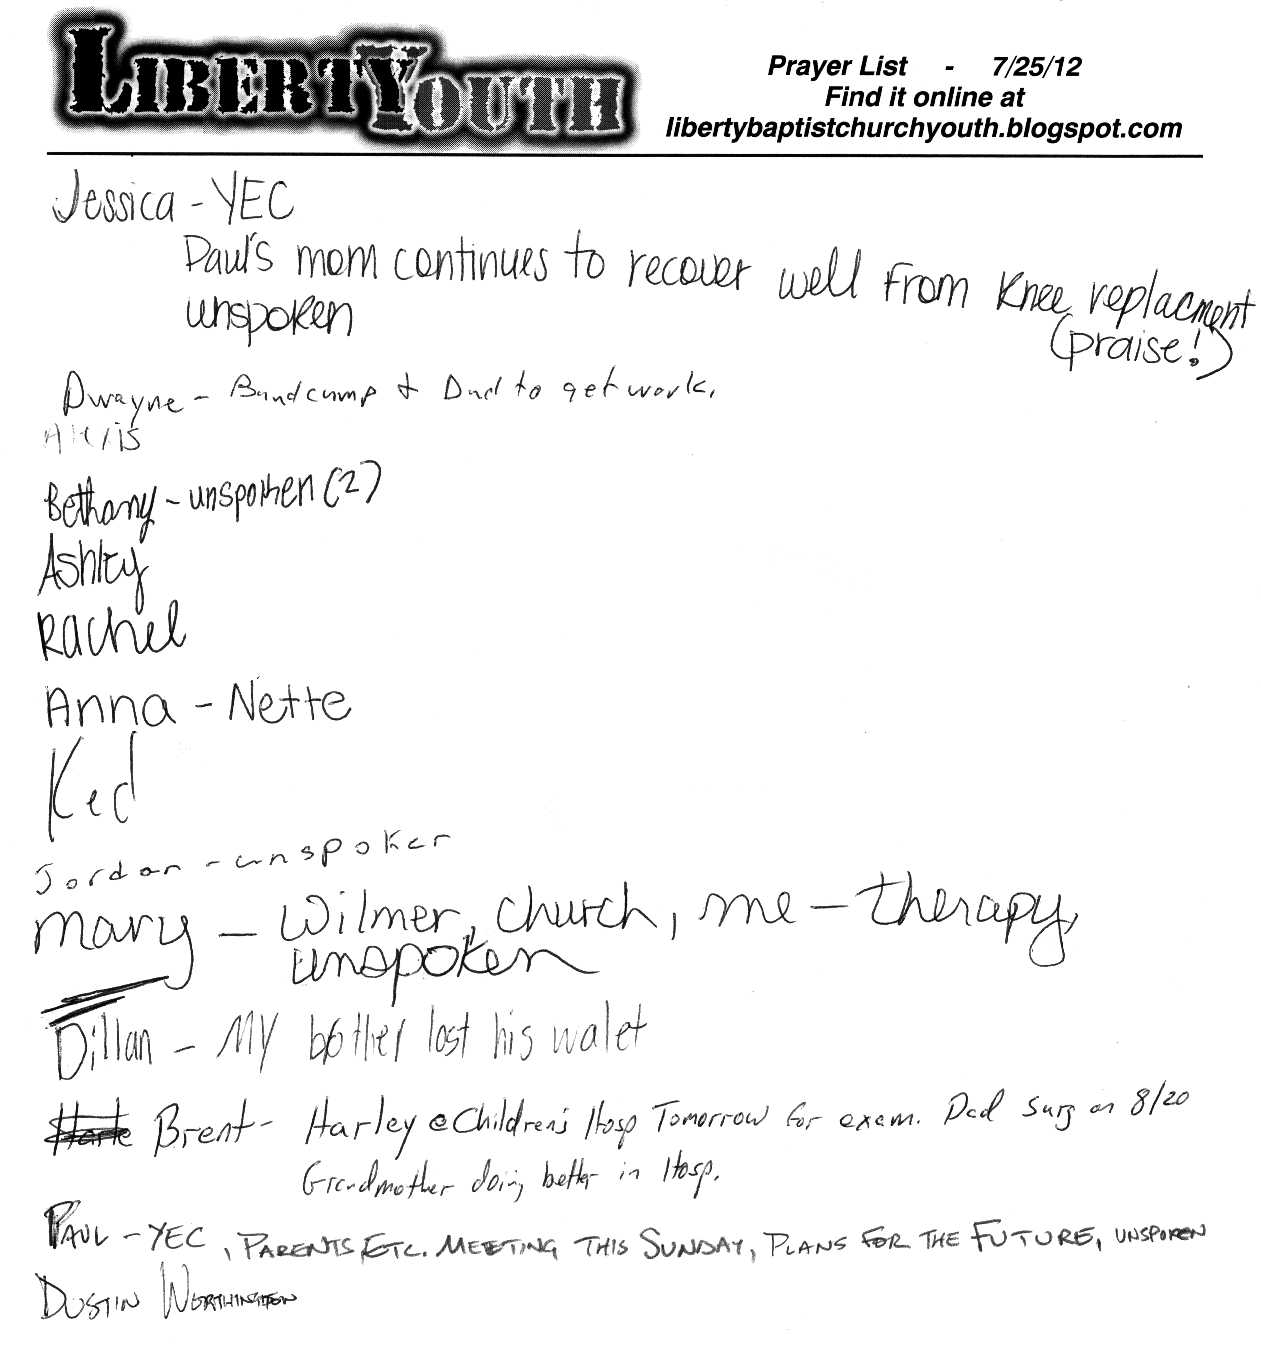 LIBERTY YOUTH
Prayer List - 7/25/12
Find it online at
libertybaptistchurchyouth.blogspot.com
Jessica - YEC
Paul's mom continues to recover well from knee replacment
unspoken (praise!)
Dwayne - Bandcamp + Dad to get work.
Bethany - unspoken (2)
Ashley
Rachel
Anna - Nette
Jordan - unspoken
Mary - Wilmer, church, me - therapy,
unspoken
Dillan - My brother lost his walet
Brent - Harley @ Children's Hosp Tomorrow for exam. Dad surg on 8/20
Grandmother doing better in Hosp.
PAUL - YEC, PARENTS ETC. MEETING THIS SUNDAY, PLANS FOR THE FUTURE, UNSPOKEN
DUSTIN WORTHINGTON